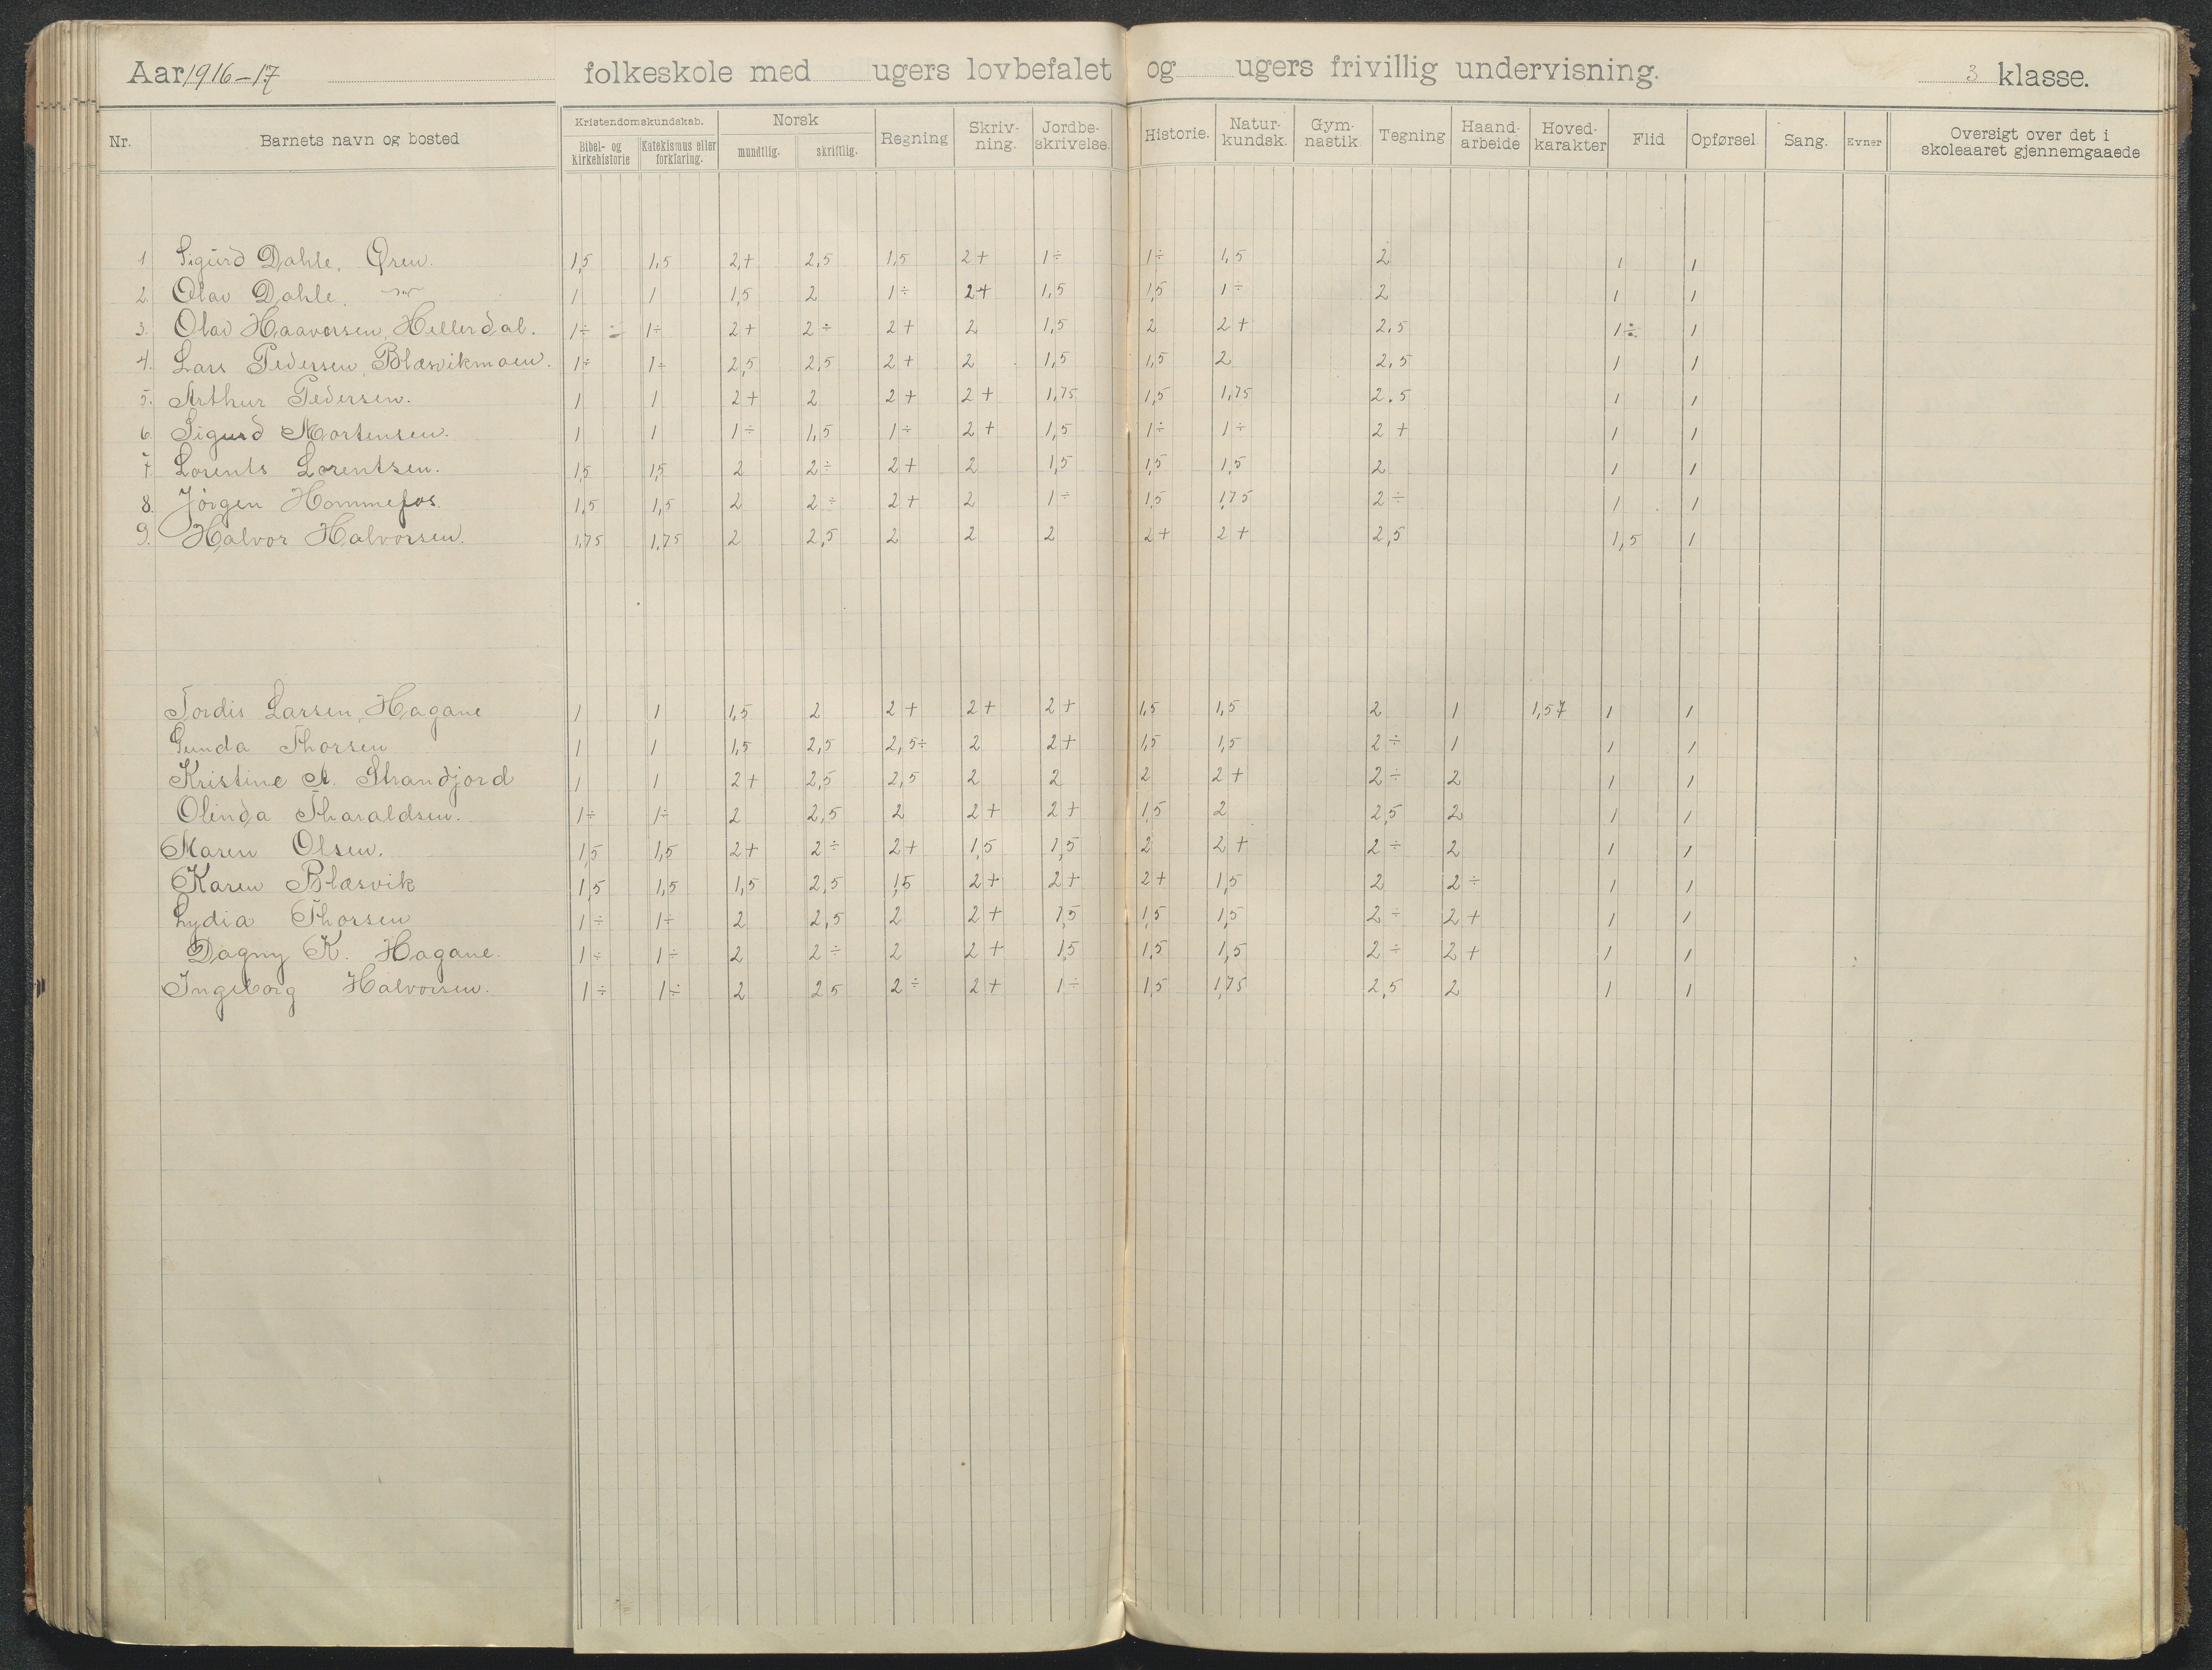 Aar 1916-17 folkeskole med ugers lovbefalet og ugers frivillig undervisning. 3 klasse.
Nr. Barnets navn og bosted Kristendomskundskab. Bibel- og kirkehistorie Katekismus eller forklaring. Norsk mundtlig. skriftlig. Regning Skriv-ning. Jordbe-skrivelse. Historie. Natur-kundsk. Gym-nastik Tegning Haand-arbeide Hoved-karakter Flid Opførsel Sang. Evner Oversigt over det i skoleaaret gjennemgaaede
1 Sigurd Dahle, Øren. 1,5 1,5 2+ 2,5 1,5 2+ 1÷ 1÷ 1,5 2 1 1
2. Olav Dahle. 1 1 1,5 2 1÷ 2+ 1,5 1,5 1÷ 2 1 1
3. Olav Haavorsen, Hellerdal. 1÷ 1÷ 2+ 2÷ 2+ 2 1,5 2 2+ 2,5 1÷ 1
4. Lars Pedersen, Blæsvikmoen. 1÷ 1÷ 2,5 2,5 2+ 2 1,5 1,5 2 2,5 1 1
5. Arthur Pedersen. 1 1 2+ 2 2+ 2+ 1,75 1,5 1,75 2.5 1 1
6. Sigurd Mortensen. 1 1 1÷ 1,5 1÷ 2+ 1,5 1÷ 1÷ 2+ 1 1
7. Lorents Lorentsen. 1,5 1,5 2 2÷ 2+ 2 1,5 1,5 1,5 2 1 1
8. Jörgen Hommefos. 1,5 1,5 2 2÷ 2+ 2 1÷ 1,5 1,75 2÷ 1 1
9. Halvor Halvorsen. 1,75 1,75 2 2,5 2 2 2 2+ 2+ 2,5 1,5 1
Tordis Larsen, Hagane 1 1 1,5 2 2+ 2+ 2+ 1,5 1,5 2 1 1,57 1 1
Gunda Thorsen 1 1 1,5 2,5 2,5÷ 2 2+ 1,5 1,5 2÷ 1 1 1
Kristine A. Strandjord 1 1 2+ 2,5 2,5 2 2 2 2+ 2÷ 2 1 1
Olinda Tharaldsen. 1÷ 1÷ 2 2,5 2 2+ 2+ 1,5 2 2,5 2 1 1
Maren Olsen. 1,5 1,5 2+ 2÷ 2+ 1,5 1,5 2 2+ 2÷ 2 1 1
Karen Blæsvik 1,5 1,5 1,5 2,5 1,5 2+ 2+ 2+ 1,5 2 2÷ 1 1
Lydia Thorsen 1÷ 1÷ 2 2,5 2 2+ 1,5 1,5 1,5 2÷ 2+ 1 1
Dagny K. Hagane. 1÷ 1÷ 2 2÷ 2 2+ 1,5 1,5 1,5 2÷ 2+ 1 1
Ingeborg Halvorsen. 1÷ 1÷ 2 2 5 2÷ 2+ 1÷ 1,5 1,75 2,5 2 1 1